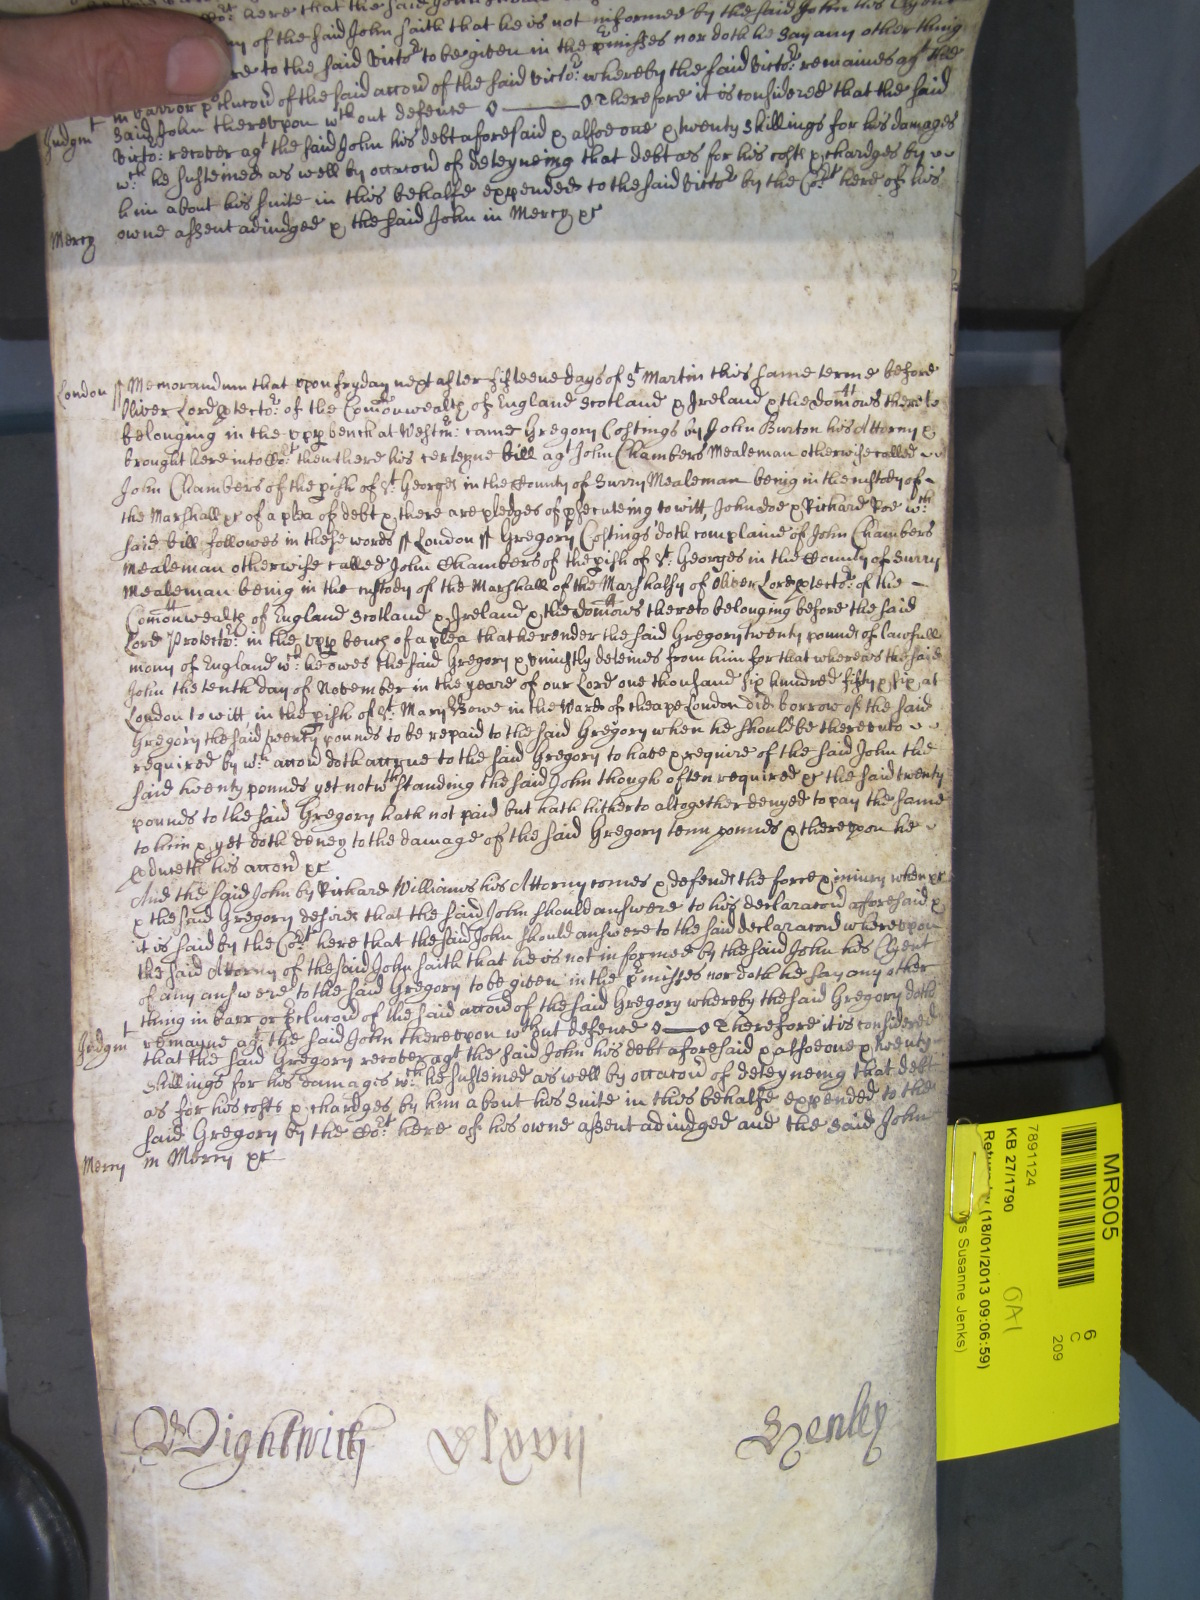 Cort here that the said John
ny of the said John saith that he is not informed by the said John his Clyent
re to the said Victor to be given in the pmisses nor doth he say any other thing
in barr or pclucoñ of the said accoñ of the said Victor whereby the said Victor remaines agt the
said John thereupon wthout defence o——o Therefore it is considered that the said
Judgmt
Victor recover agt the said John his debt aforesaid & alsoe one & twenty shillings for his damages
wch he susteined as well by occacoñ of deteyneing that debt as for his costs & chardges by
him about his suite in this behalfe expended to the said Victor by the Cort here of his
owne assent adiudged & the said John in Mercy &c
Mercy
London ss Memorandum that upon fryday next after fifteene days of St Martin this same terme before
Oliver Lord ptector of the Comonwealth of England Scotland & Ireland & the domions thereto
belonging in the upp bench at Westmr came Gregory Costings by John Burton his Attorny &
brought here into Cort then there his certeyne bill agt John Chambers Mealeman otherwise called
John Chambers of the pish of St Georges in the County of Surry Mealeman being in the custody of
the Marshall &c of a plea of debt & there are pledges of psecuteing to witt, John doe & Richard Roe wch
said bill followes in these words ss London ss Gregory Costings doth complaine of John Chambers
Mealeman otherwise called John Chambers of the pish of St Georges in the County of Surry
Mealeman being in the custody of the Marshall of the Marshalsy of Oliver Lord ptector of the
Comonwealth of England Scotland & Ireland & the domions thereto belonging before the said
Lord Protector in the upp bench of a plea that he render the said Gregory twenty pounds of lawfull
mony of England wch he owes the said Gregory & uniustly deteines from him for that whereas the said
John the tenth day of November in the yeare of our Lord one thousand six hundred fifty & six at
London to witt, in the pish of St Mary Bowe in the Ward of cheape London did borrow of the said
Gregory the said twenty pounds to be repaid to the said Gregory when he should be thereunto
required by wch accoñ doth accrue to the said Gregory to have & require of the said John the
said twenty pounds yet notwthstanding the said John though often required &c the said twenty
pounds to the said Gregory hath not paid but hath hitherto altogether denyed to pay the same
to him & yet doth deney to the damage of the said Gregory tenn pounds & thereupon he
pduceth his accoñ &c
And the said John by Richard Williams his Attorny comes & defends the force & iniury when &c
& the said Gregory desires that the said John should answere to his declaracoñ aforesaid &
it is said by the Cort here that the said John should answere to the said declaracoñ whereupon
the said Attorny of the said John saith that he is not informed by the said John his Clyent
of any answere to the said Gregory to be given in the pmisses nor doth he say any other
thing in barr or pclucoñ of the said accoñ of the said Gregory whereby the said Gregory doth
remayne agt the said John thereupon wthout defence o——o Therefore it is considered
Judgmt
that the said Gregory recover agt the said John his debt aforesaid & alsoe one & twenty
shillings for his damages wch he susteined as well by occacoñ of deteyneing that debt
as for his costs & chardges by him about his suite in this behalfe expended to the
said Gregory by the Cort here of his owne assent adiudged and the said John
Mercy in Mercy &c
Wightwick Henley
MR005
6
C
209
7891124
KB 27/1790
OA1
Return by (18/01/2013 09:06:59)
Susanne Jenks)